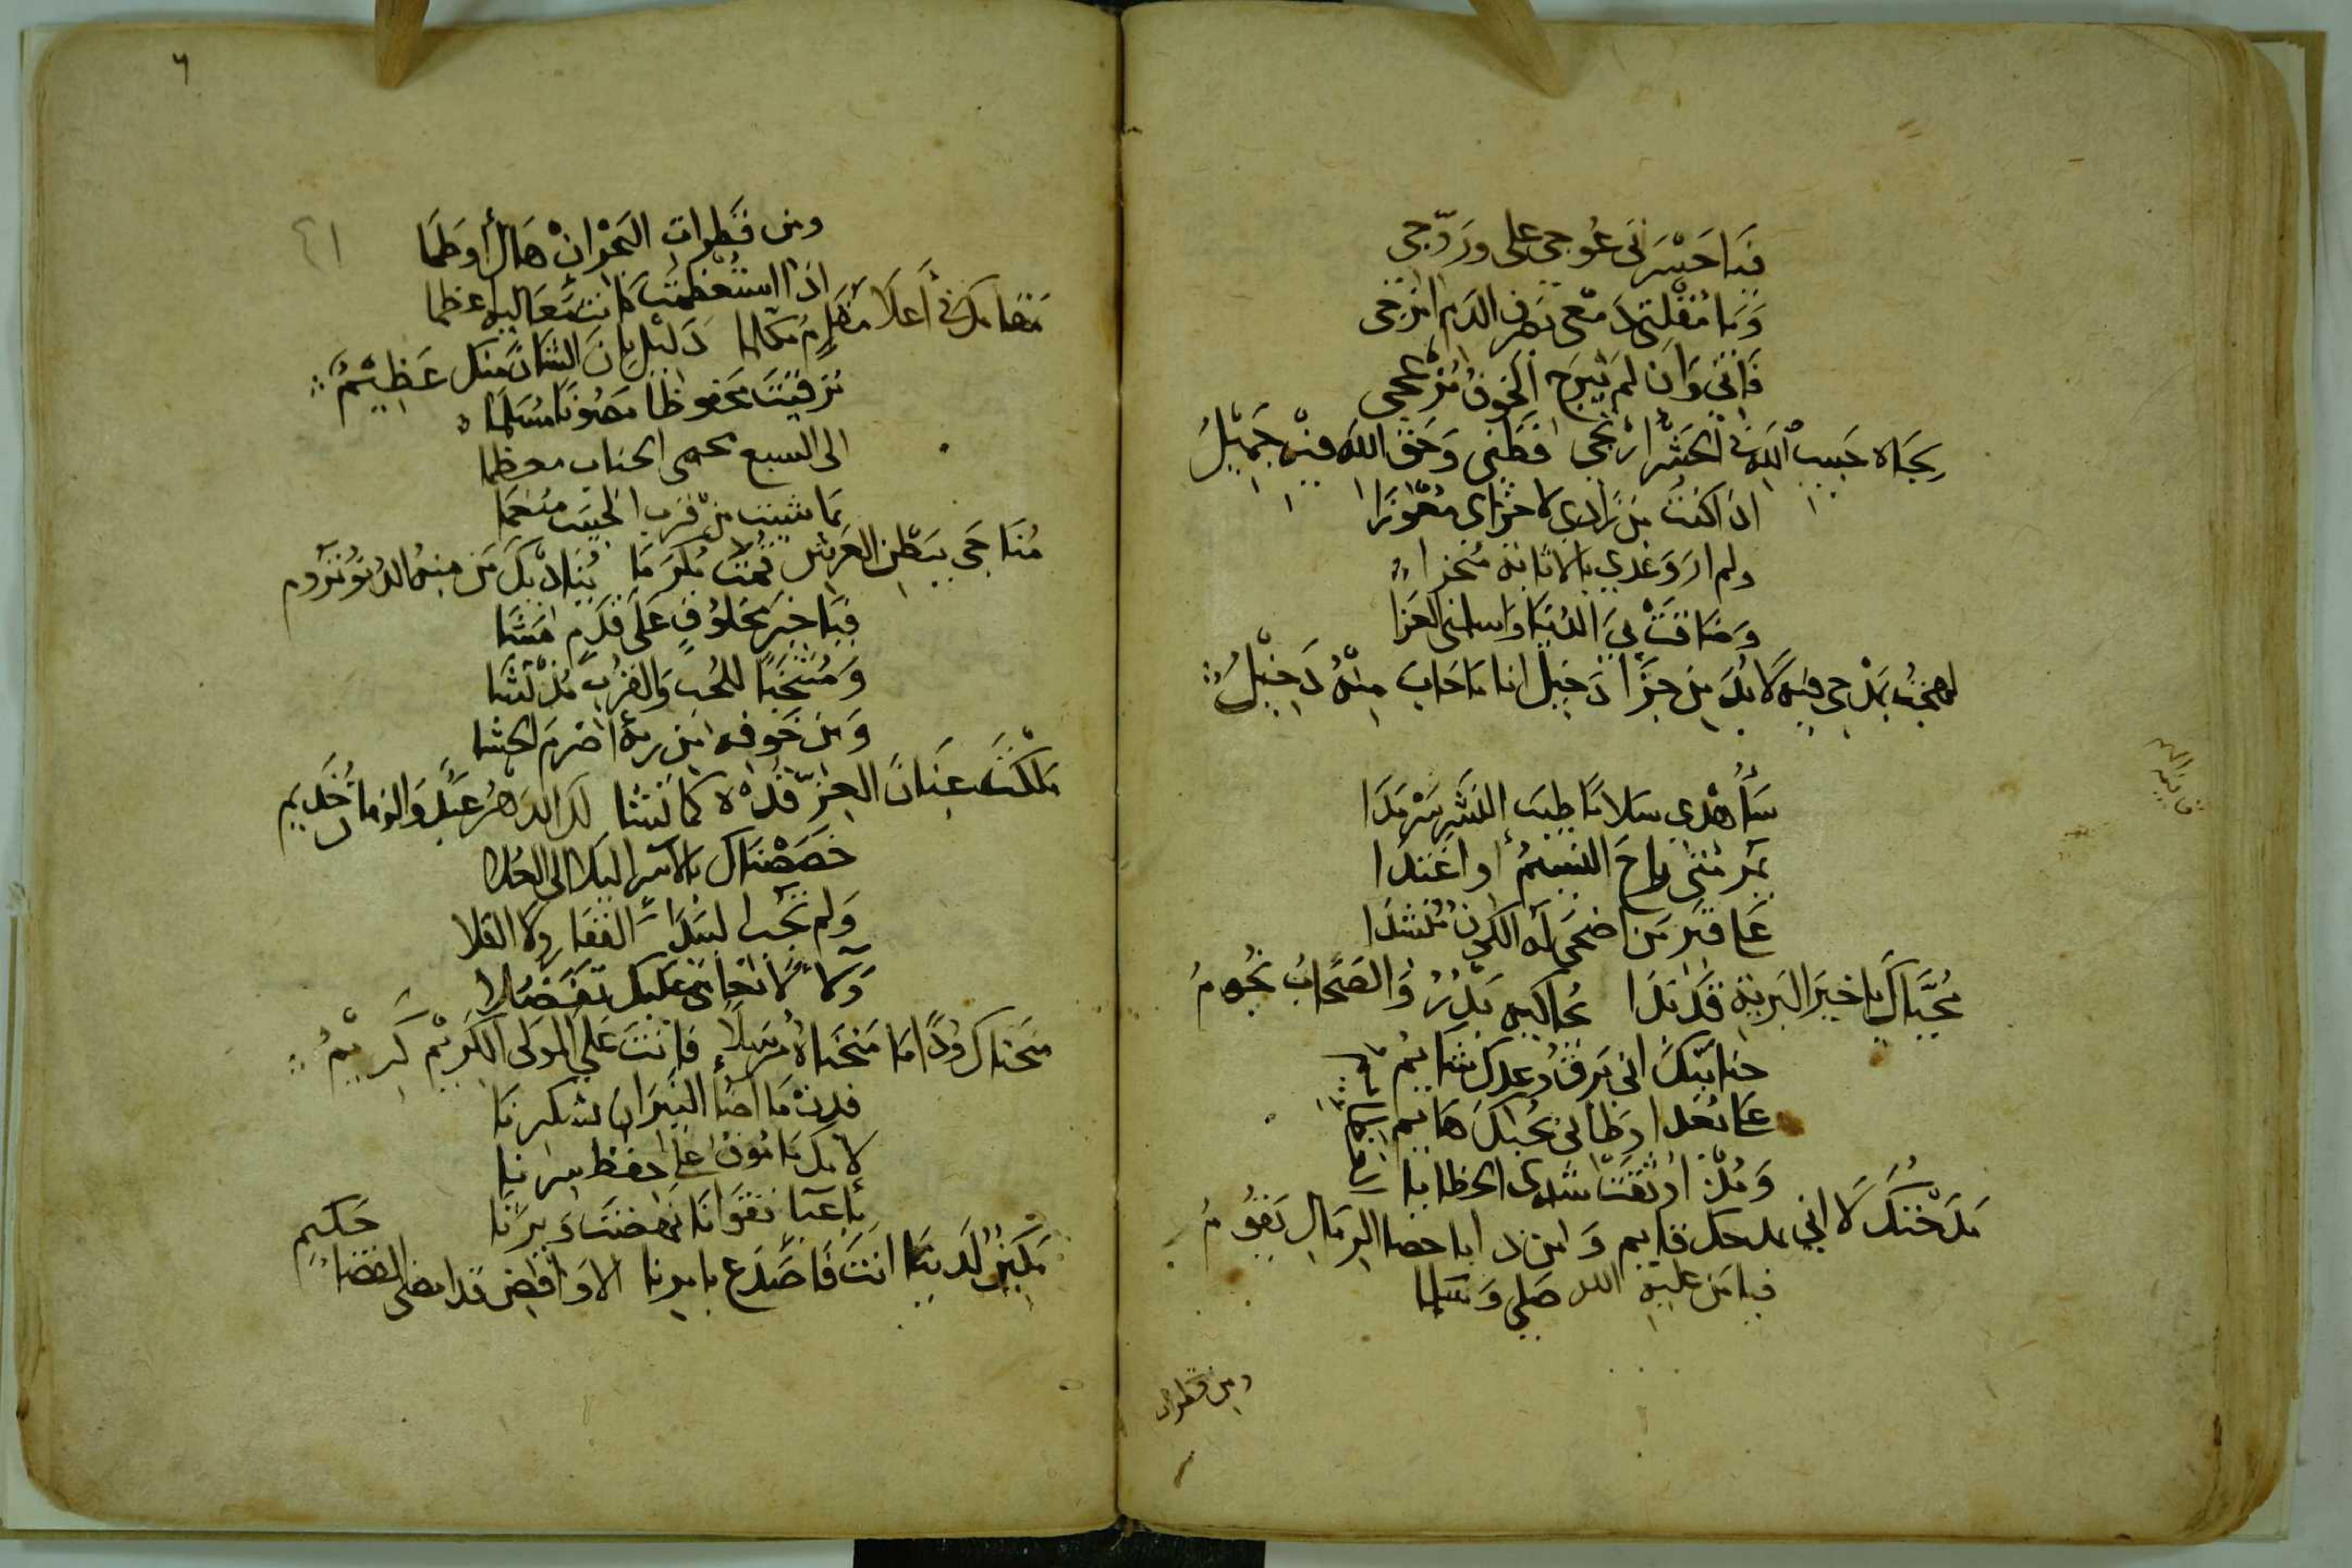 فيا حسرتي عوجي علي ورَدّجي
وَيا مُقْلتي دَمعي نهر الدم امزجي
فَاِني وَان لم يَبرَح الخوف مُزعجي
بجَاه حَبيب اللهِ في الحَشر ارْتجي افظني وَحَق الله فيه جَميْلُ
اذا كنتُ من زادي لاخراي مُعْوِزَا
ولم ار وَعْدي بالانابة مُنجزا
وَضَاقَتْ بيَ الدُنيَا واسلمني العَزا
لهجتُ بمَدْحي فيه لا بُدَ من جَزَا دَخيل انا ما خابَ مِنْهُ دَخِيْلُ
قافية الميم
سَأُهْدي سَلامًا طيبَ النَشر سَرْمَدَا
يمر متى راحَ النسيمُ أو اغتدَا
عَلى قبر مَن اضحى له الكون مُنشدَا
مُحيَاك يا خيرَ البَرية قد بَدَا يحاكيه بَدْرُ وَالصَحَابُ نجُومُ
حنانيْكَ اني بَرق وَعدك شايم
عَلى بُعد اوطاني بحُبك هَايم
وَمُذ اوثقتَ شدي الخطايا
مَدَحْتُكَ لَا اني بمدحك قايم وَ من ذا باحصا الرمالِ يَقُومُ
فيا مَن عليهِ الله صَلى وَسَلما
ومن قطرات
٦
٤١
ومن قطرات البَحْر انْ هَالَ أو طَمَا
اذا استُعْظمَت كانت مَعَاليه اعظما
مَقامك في أعلَا مقام مُكَرَّمَا دَليل بان الشان منك عَظِيْمُ
ترقيتَ محفوظا مصونا مُسَلما
الى السبع محمى الجناب معظما
بما شيت من قرب الحبيب منعما
مُنَاجَى ببَطن العَرش ثمت مُكرَمَا يُنَاديْكَ مَن منه الدنو تَرُوم
فيَا خيرَ مَخلُوقٍ عَلَى قدَمٍ مَشَا
وَمُنتَخَبًا للحُب وَالقرب مُذ نَشَا
وَمَن خَوفه من ربه اضرمَ الحشا
مَلَكْتَ عِنَان العِزّ قُدْه كما تشا لك الدَهرُ عَبْد وَالزمان خَديم
خَصَصْناك بالاسرا ليلا الى العُلا
وَلم تَجُب البيدَاء القفار وَلا الفلا
وَآلاؤُنا نجلى عليك تفضُلا
مَنحناك وُدًا مَا مَنحَناهُ مُرسَلا فانتَ على المَولى الكَريْم كَريْمُ
فدُمْ مَا اضا النيرَان بشكرنا
لانك مَامُون على حفظ سِرنا
باعبَا تقوَانَا نهَضتَ وَبِرِنَا
مَكِينٌ لدَينا انتَ فَاصدَع بامرنا الا وَاقض قد امضى القضاءَ حَكيم